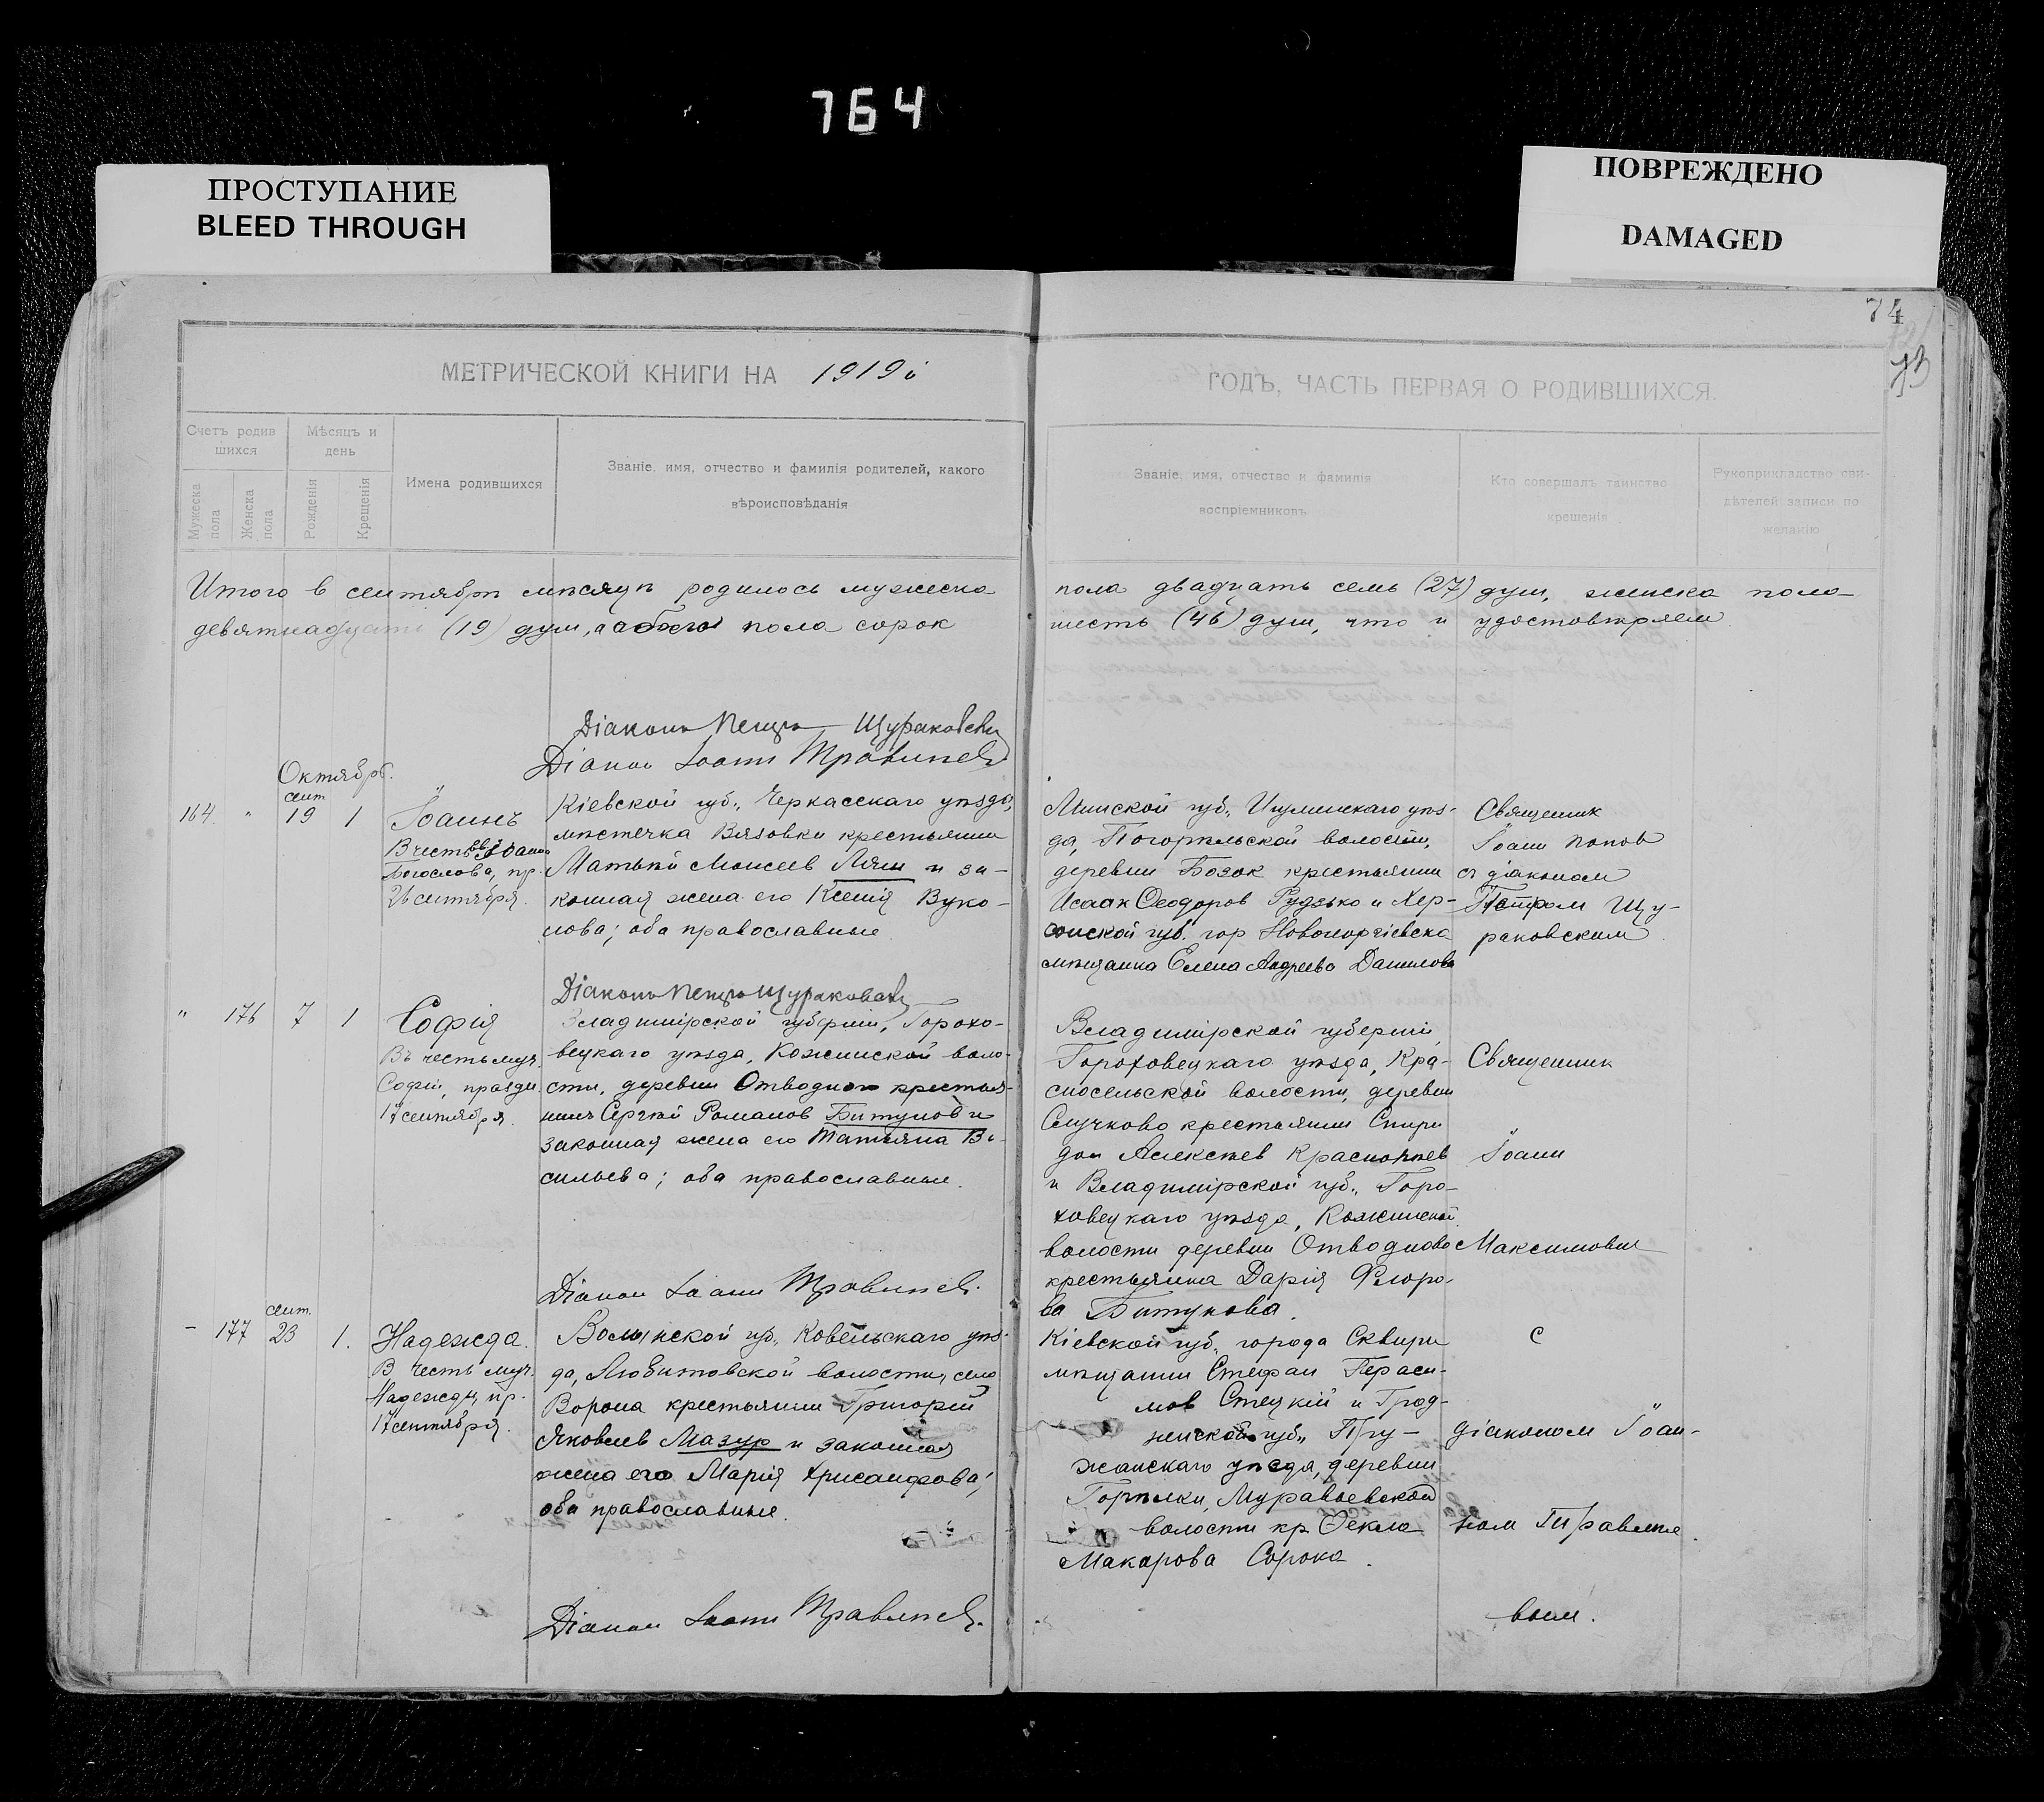 764
ПРОСТУПАНИЕ
BLEED THROUGH
ПОВРЕЖДЕНО
DAMAGED
74
73
МЕТРИЧЕСКОЙ КНИГИ НА 1919й
ГОДЪ, ЧАСТЬ ПЕРВАЯ О РОДИВШИХСЯ.
Счетъ родив
шихся
Мужеска
пола
Женска
пола
Мѣсяцъ и
день
Рожденія
Крещенія
Имена родившихся
Званіе, имя, отчество и фамилія родителей, какого
вѣроисповѣданія
Званіе, имя, отчество и фамилія
воспріемниковъ
Кто совершалъ таинство
крещенія
Рукоприкладство сви-
дѣтелей записи по
желанію
Итого в сентябрѣ мѣсяцѣ родилось мужеска
пола двадцать семь (27) душ, женска пола
девятнадцать (19) душ, а обоего пола сорок
шесть (46) душ, что и удостовѣряем
Діаконъ Петръ Щураковскій
Діакон Іоанн Травинъ
Октябрь.
164 " сент 19 1
Іоаннъ
В честь св. Іоанна
Богослова, пр.
26 сентября.
Кіевской губ., Черкасскаго уѣзда,
мѣстечка Вязовки крестьянин
Матвѣй Моисеев Ляш и за-
конная жена его Ксенія Вуко-
лова; оба православные
Минской губ., Игуменскаго уѣз-
да, Погорѣльской волости,
деревни Бозок крестьянин
Исаак Ѳеодоров Рудзько и Хер-
сонской губ. гор Новогеоргіевска
мѣщанка Елена Андреева Данилова
Священник
Іоанн Попов
с діаконом
Петром Щу-
раковским
Діаконъ Петръ Щураковскій
" 176 7 1
Софія
Въ честь муч.
Софіи, праздн.
17 сентября.
Владимірской губерніи, Горохо-
вецкаго уѣзда, Кожинской воло-
сти, деревни Отводново крестья-
нинъ Сергѣй Романов Битунов и
законная жена его Татьяна Ва-
сильева; оба православные.
Владимірской губерніи,
Гороховецкаго уѣзда, Кра-
сносельской волости, деревни
Случково крестьянин Спири
дон Алексѣев Краснопѣев
и Владимірской губ., Горо-
ховецкаго уѣзда, Кожинской
волости деревни Отводново
крестьянка Дарія Флоро-
ва Битунова.
Священник
Іоанн
Максимович
Діакон Іоанн Травинъ.
- 177 сент. 23 1.
Надежда.
В честь муч.
Надежды, пр.
17 сентября.
Волынской губ., Ковельскаго уѣз-
да, Любитовской волости, села
Ворона крестьянин Григорій
Яковлев Мазур и законная
жена его Марія Хрисанфова;
оба православные.
Кіевской губ. города Сквиры
мѣщанин Стефан Гераси-
мов Стецкій и Грод-
ненской губ., Пру-
жанскаго уѣзда, деревни
Горѣлки, Муравьевской
волости кр. Ѳекла
Макарова Сорока.
с
діаконом Іоан-
ном Травине
вым.
Діакон Іоанн Травинъ.